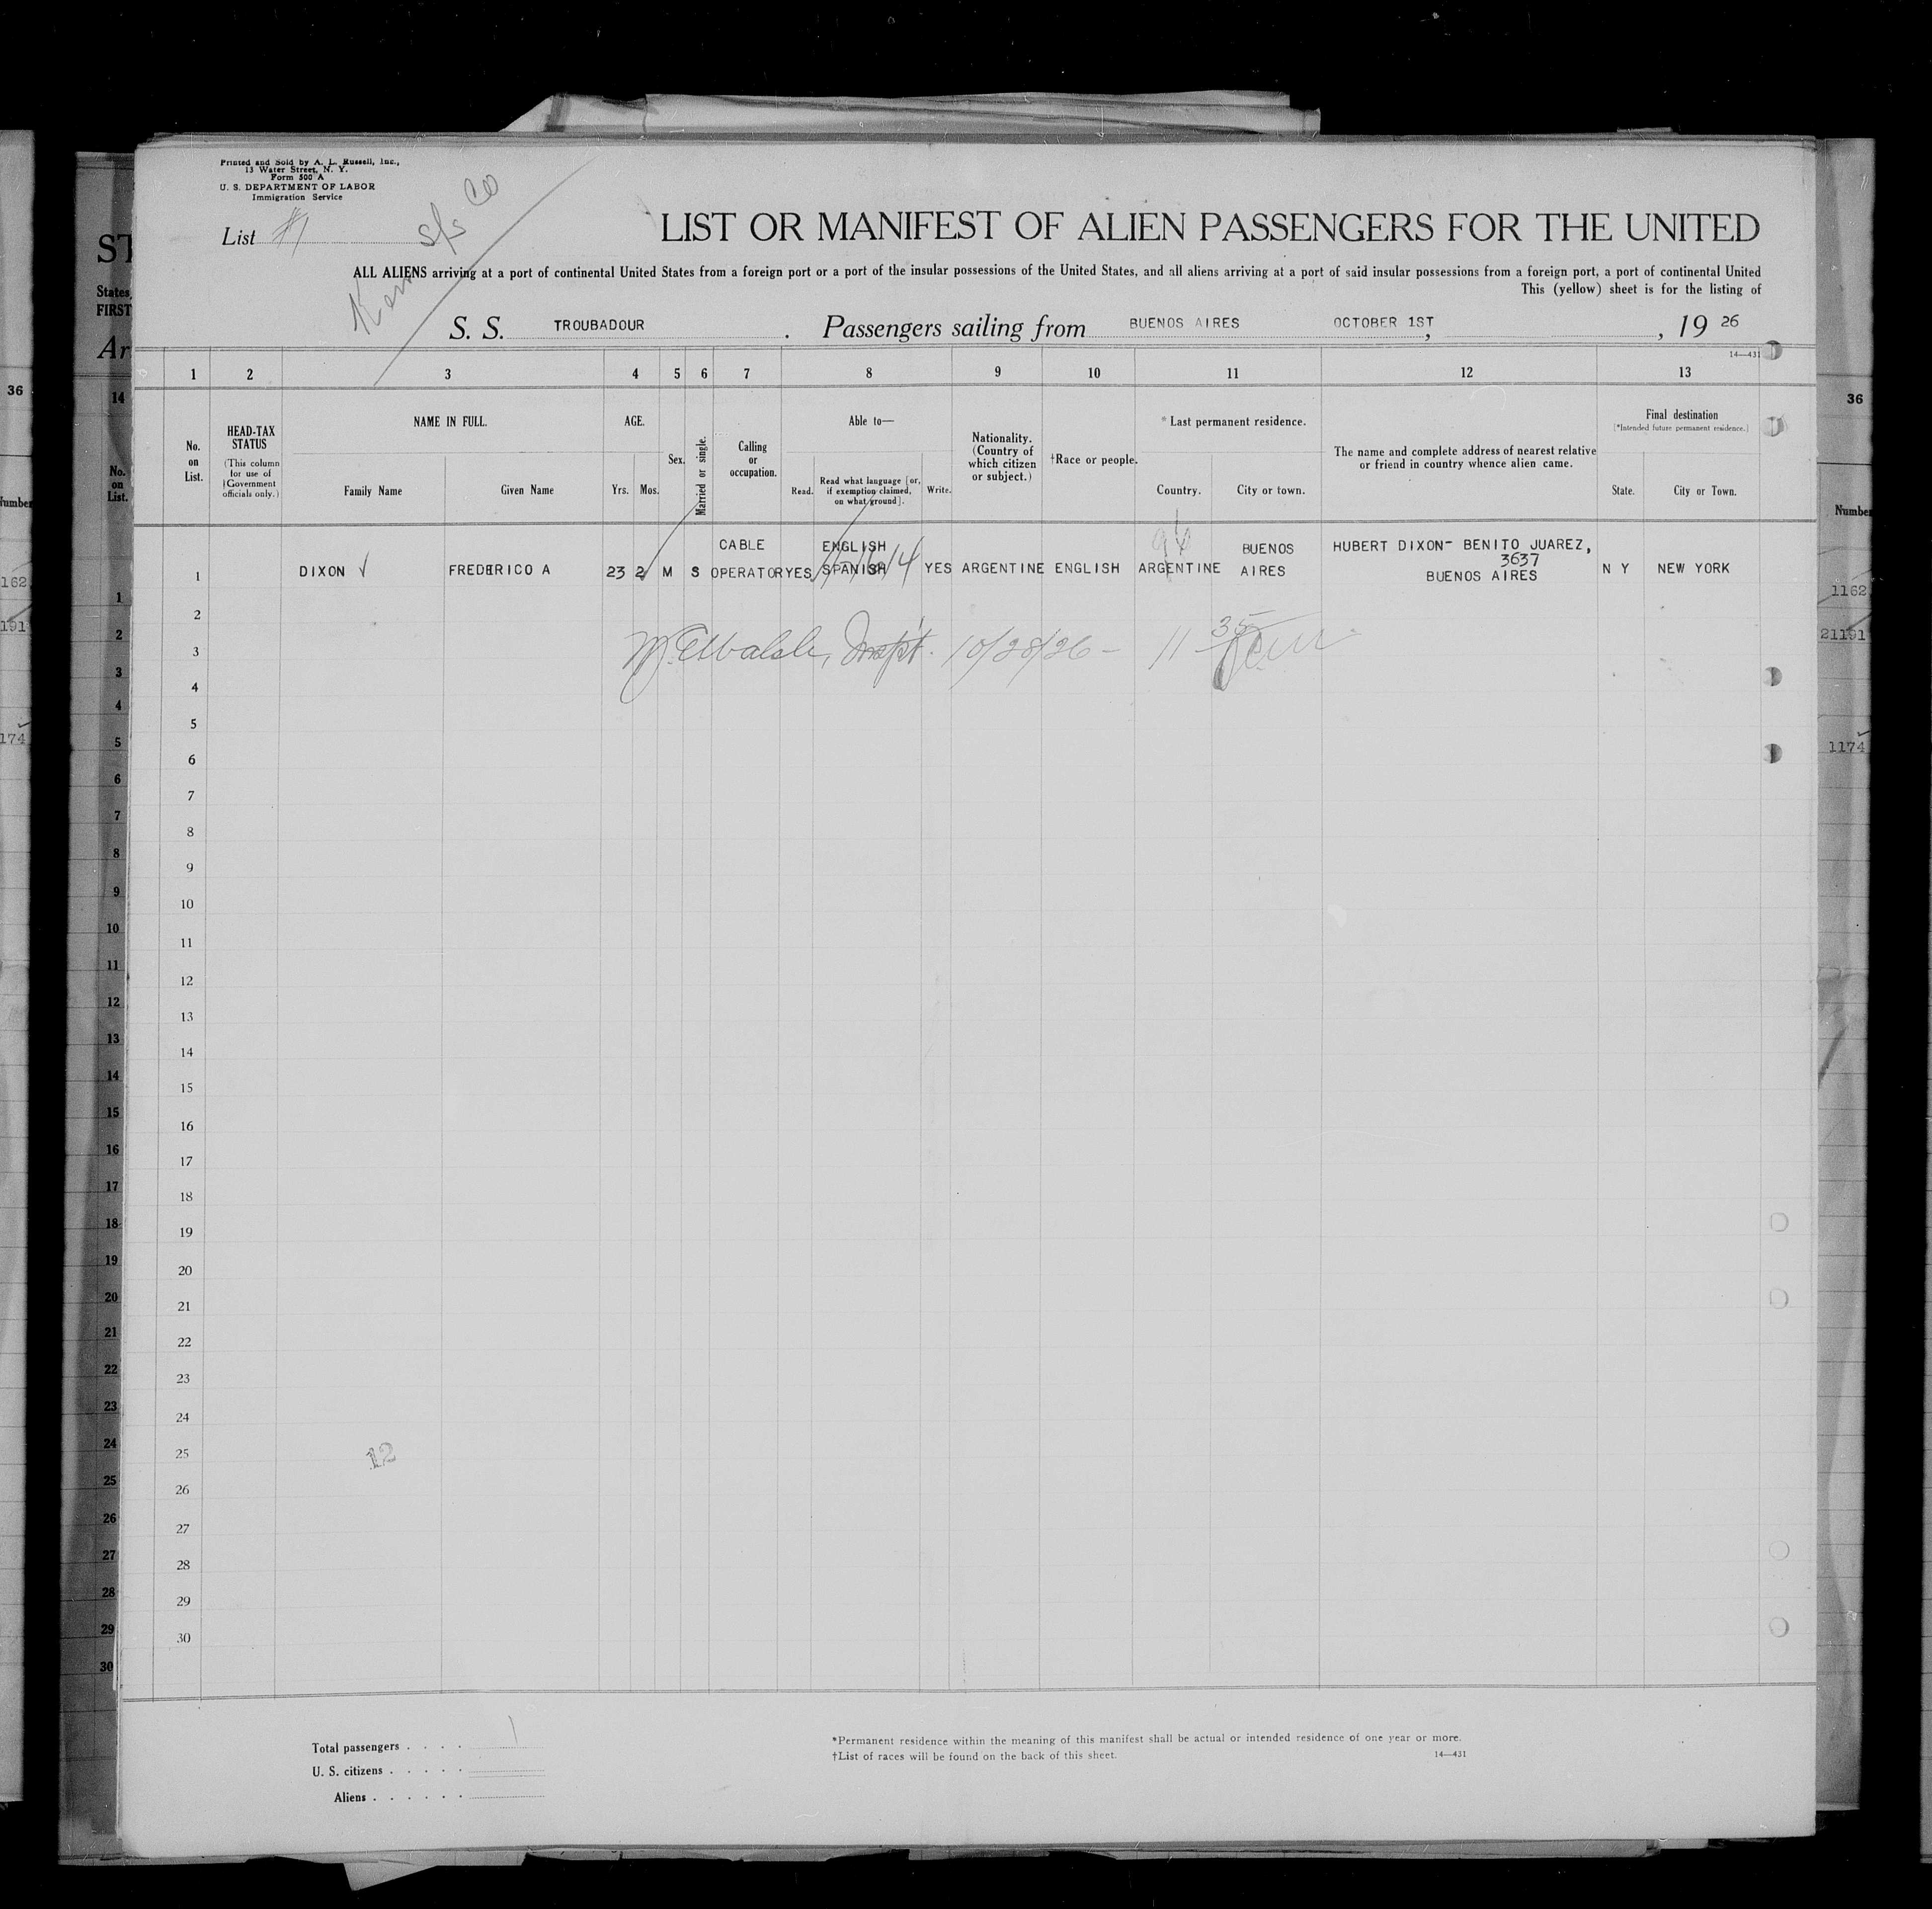 Printed and Sold by A. L. Russell, Inc.,
13 Water Street, N. Y.
Form 500 A
U. S. DEPARTMENT OF LABOR
Immigration Service
List #1
S/S Co
LIST OR MANIFEST OF ALIEN PASSENGERS FOR THE UNITED
ALL ALIENS arriving at a port of continental United States from a foreign port or a port of the insular possessions of the United States, and all aliens arriving at a port of said insular possessions from a foreign port, a port of continental United
This (yellow) sheet is for the listing of
S. S. TROUBADOUR. Passengers sailing from BUENOS AIRES OCTOBER 1ST, , 19 26
14—431
1 2 3 4 5 6 7 8 9 10 11 12 13
No. on List.
HEAD-TAX STATUS
(This column for use of Government officials only.)
NAME IN FULL.
Family Name Given Name
AGE.
Yrs. Mos.
Sex.
Married or single.
Calling or occupation.
Able to—
Read. Read what language [or, if exemption claimed, on what ground]. Write.
Nationality. (Country of which citizen or subject.)
†Race or people.
*Last permanent residence.
Country. City or town.
The name and complete address of nearest relative or friend in country whence alien came.
Final destination
[*Intended future permanent residence.]
State. City or Town.
1 DIXON √ FREDERICO A 23 2 M S CABLE OPERATOR YES ENGLISH SPANISH YES ARGENTINE ENGLISH ARGENTINE BUENOS AIRES HUBERT DIXON- BENITO JUAREZ, 3637 BUENOS AIRES N Y NEW YORK
2
3 Inspt. 10/28/26 - 11 35
4
5
6
7
8
9
10
11
12
13
14
15
16
17
18
19
20
21
22
23
24
25
12
26
27
28
29
30
Total passengers . . . . 1
U. S. citizens . . . . .
Aliens . . . . . .
*Permanent residence within the meaning of this manifest shall be actual or intended residence of one year or more.
†List of races will be found on the back of this sheet.
14—431
ST
States,
FIRST
Ar
14
No. on List.
1
2
3
4
5
6
7
8
9
10
11
12
13
14
15
16
17
18
19
20
21
22
23
24
25
26
27
28
29
30
36
162
191
174
36
1162
21191
1174